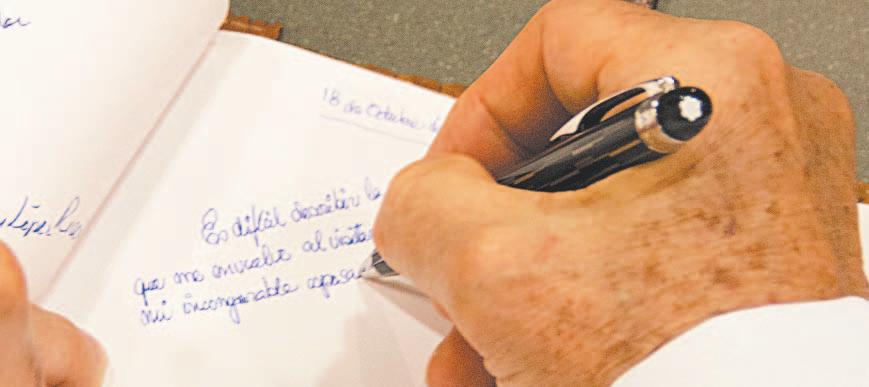 18 de Octubre d
Es difícil describir la
que me envuelve al visita
mi incomparable esposa